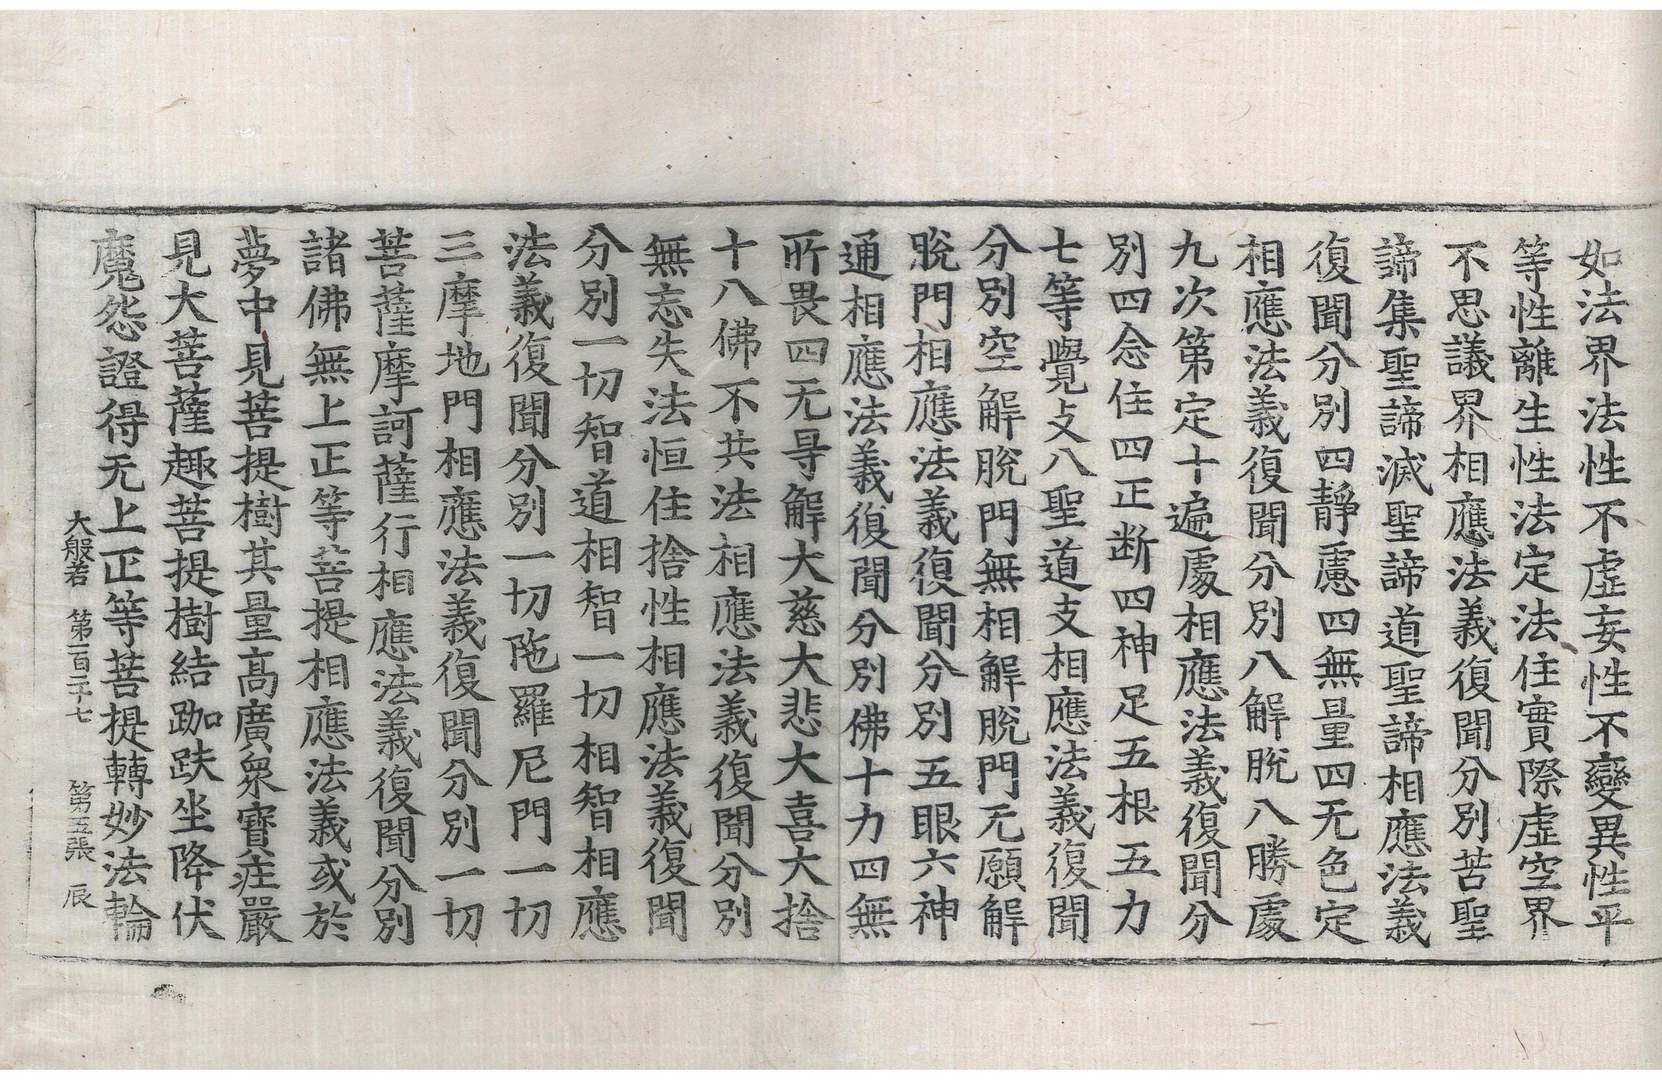 如法界法性不虛妄性不變異性平
等性離生性法定法住實際虛空界
不思議界相應法義復聞分別苦聖
諦集聖諦滅聖諦道聖諦相應法義
復聞分別四靜慮四無量四无色定
相應法義復聞分別八解脫八勝處
九次第定十遍處相應法義復聞分
別四念住四正断四神足五根五力
七等覺攴八聖道支相應法義復聞
分別空解脫門無相解脫門无願解
脫門相應法義復聞分別五眼六神
通相應法義復聞分別佛十力四無
所畏四无㝵解大慈大悲大喜大捨
十八佛不共法相應法義復聞分別
無忘失法恒住捨性相應法義復聞
分別一切智道相智一切相智相應
法義復聞分別一切陁羅尼門一切
三摩地門相應法義復聞分別一切
菩薩摩訶薩行相應法義復聞分別
諸佛無上正等菩提相應法義或於
夢中見菩提樹其量高廣衆寶庄嚴
見大菩薩趣菩提樹結跏趺坐降伏
魔怨證得无上正等菩提轉妙法輪
大般若 第一百二十七 第五張 辰